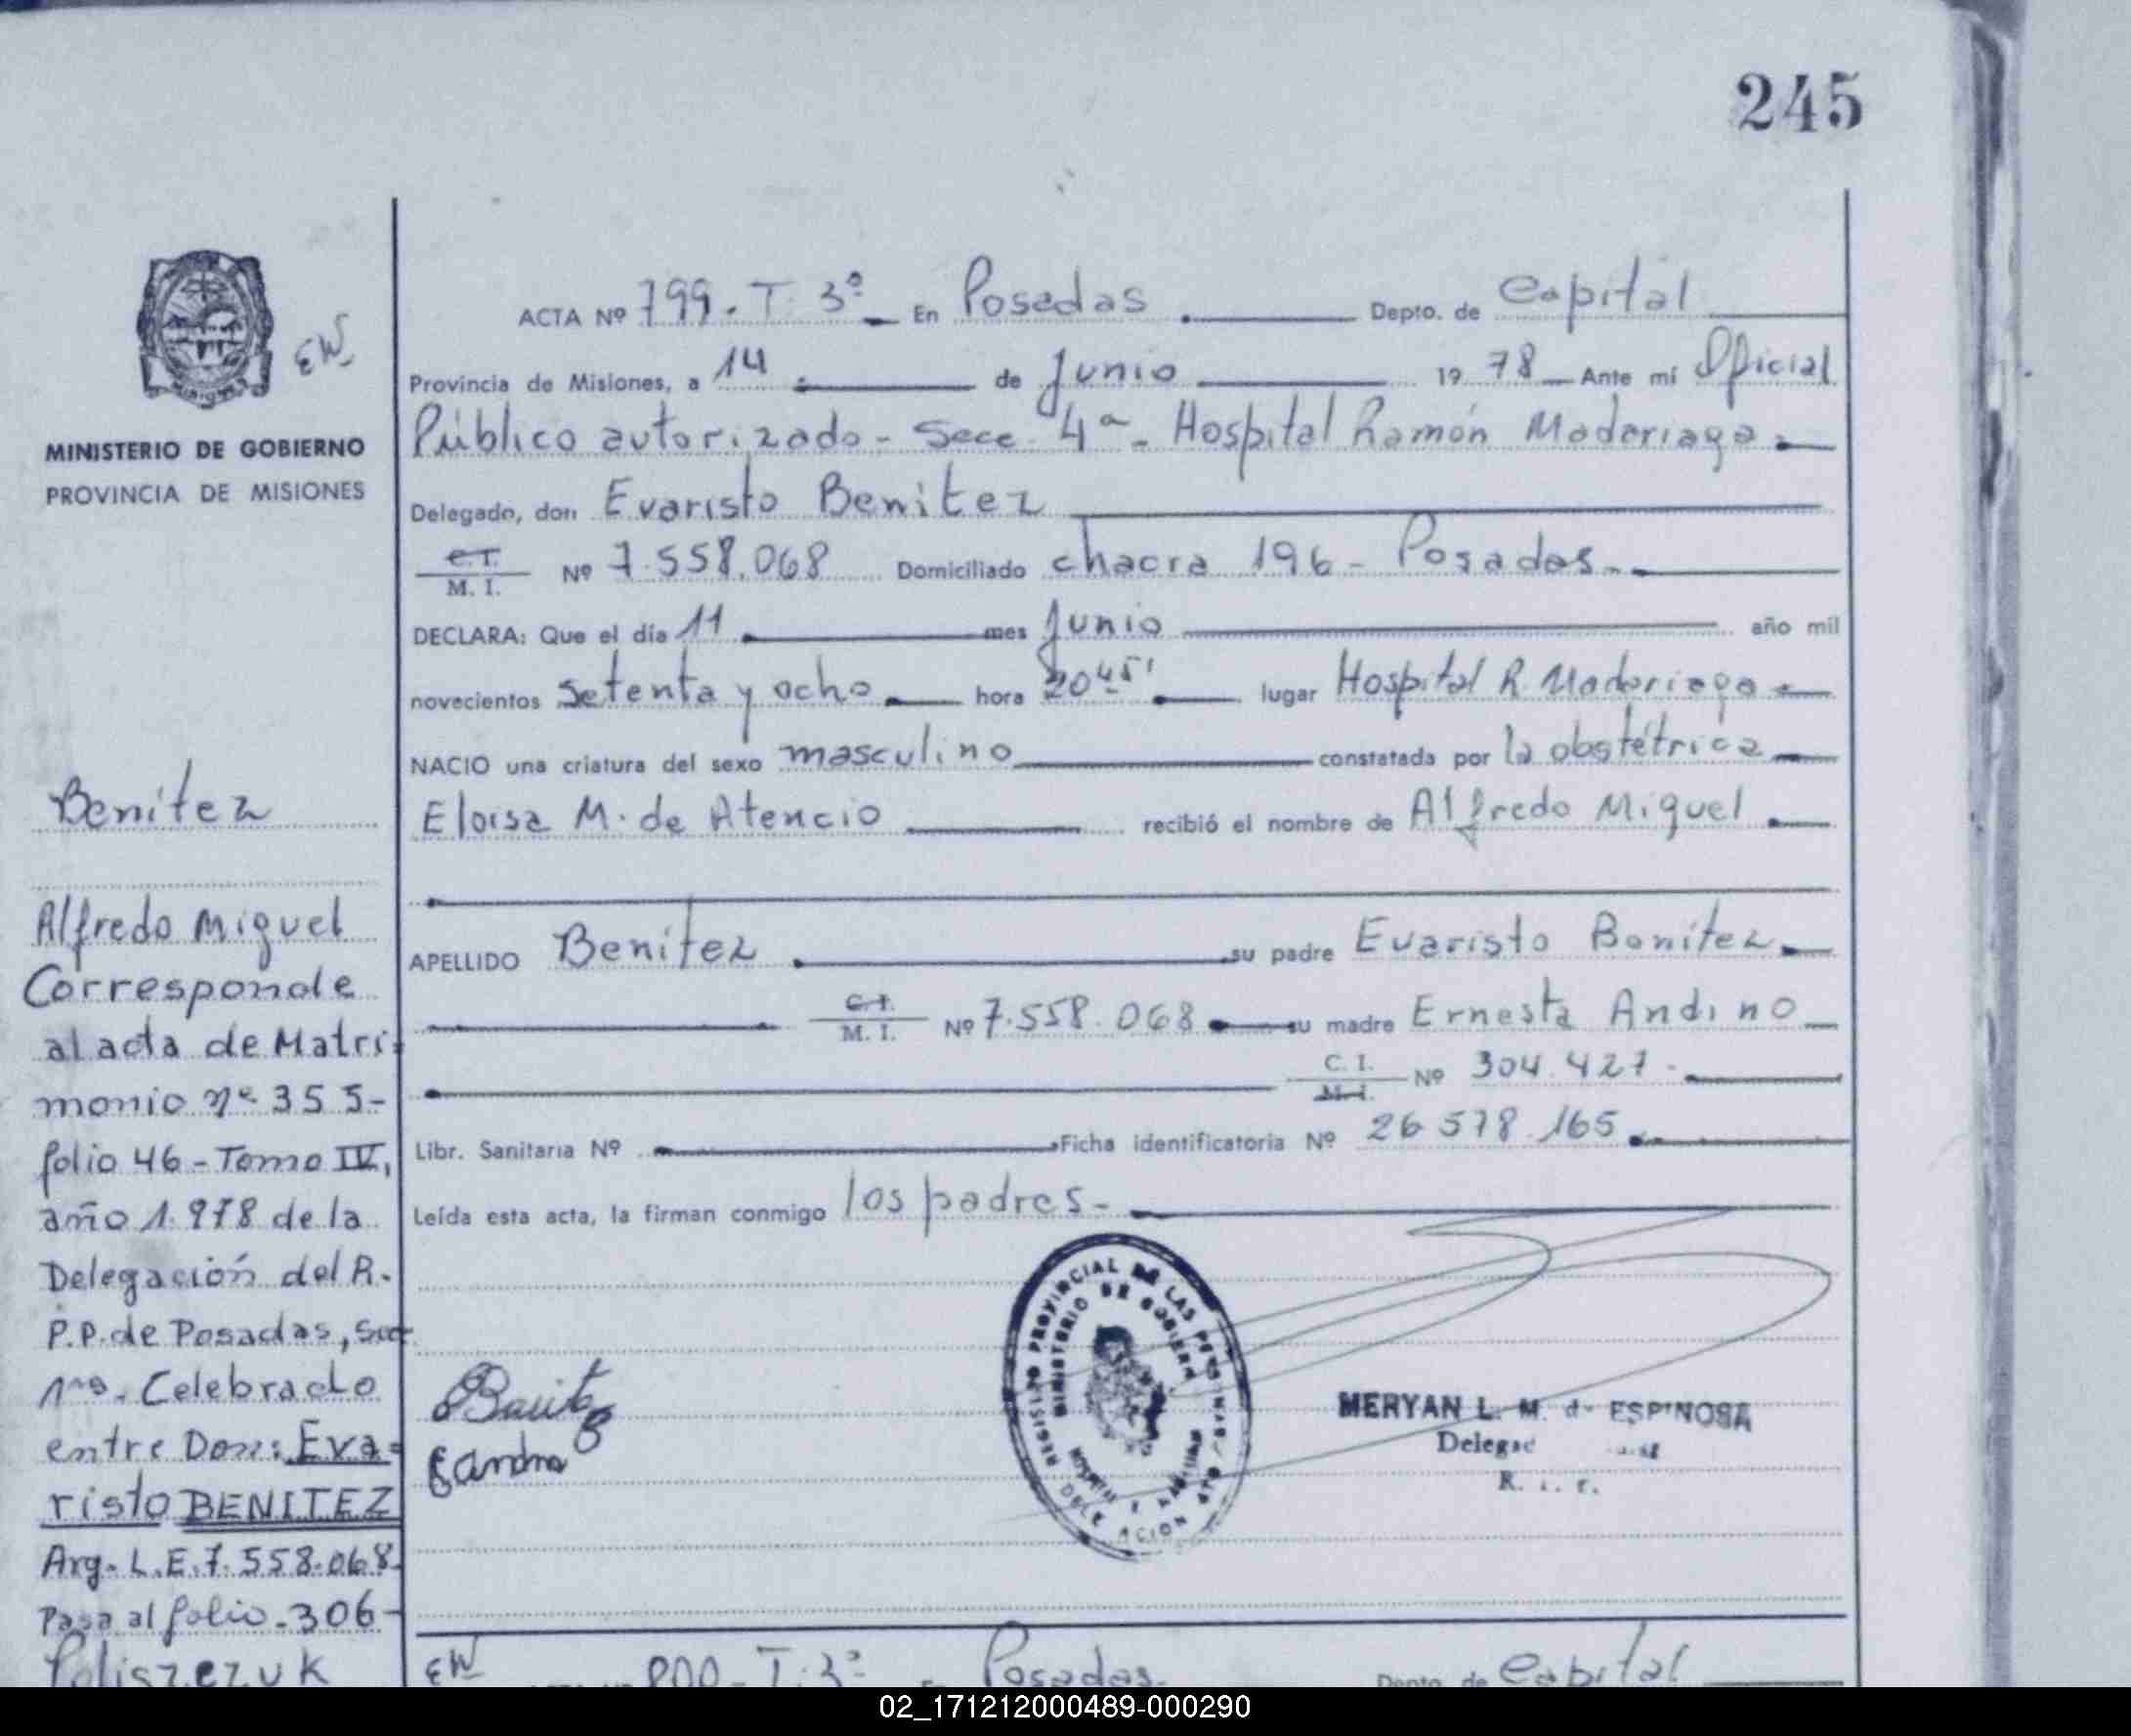 245
ACTA Nº 799. T. 3º En Posadas Depto. de Capital
Provincia de Misiones, a 14 de Junio 1978 Ante mí Oficial
Público autorizado - Secc. 4ª - Hospital Ramón Madariaga
Delegado, don Evaristo Benitez
C.I. M. I. Nº 7.558.068 Domiciliado chacra 196 - Posadas.
DECLARA: Que el día 11 mes Junio año mil
novecientos setenta y ocho hora 20 45' lugar Hospital R. Madariaga
NACIO una criatura del sexo masculino constatada por la obstétrica
Eloisa M. de Atencio recibió el nombre de Alfredo Miguel
APELLIDO Benítez su padre Evaristo Benítez
C.I. M. I. Nº 7.558.068 su madre Ernesta Andino
C. I. M.I. Nº 304.427.
Libr. Sanitaria Nº Ficha identificatoria Nº 26 578.165
Leída esta acta, la firman conmigo los padres-
EW
MINISTERIO DE GOBIERNO
PROVINCIA DE MISIONES
Benítez
Alfredo Miguel
Corresponde
al acta de Matri-
monio nº 355-
folio 46 - Tomo IV,
año 1.978 de la
Delegación del R.
P.P. de Posadas,
1ra. Celebrado
entre Don: Eva-
risto BENITEZ
Arg. L.E. 7.558.068
Pasa al folio - 306-
REGISTRO PROVINCIAL DE LAS PERSONAS
MINISTERIO DE GOBIERNO
DELEGACION
MERYAN L. M. de ESPINOSA
EW
800 - T. 3º Posadas. Depto. de Capital
02_171212000489-000290